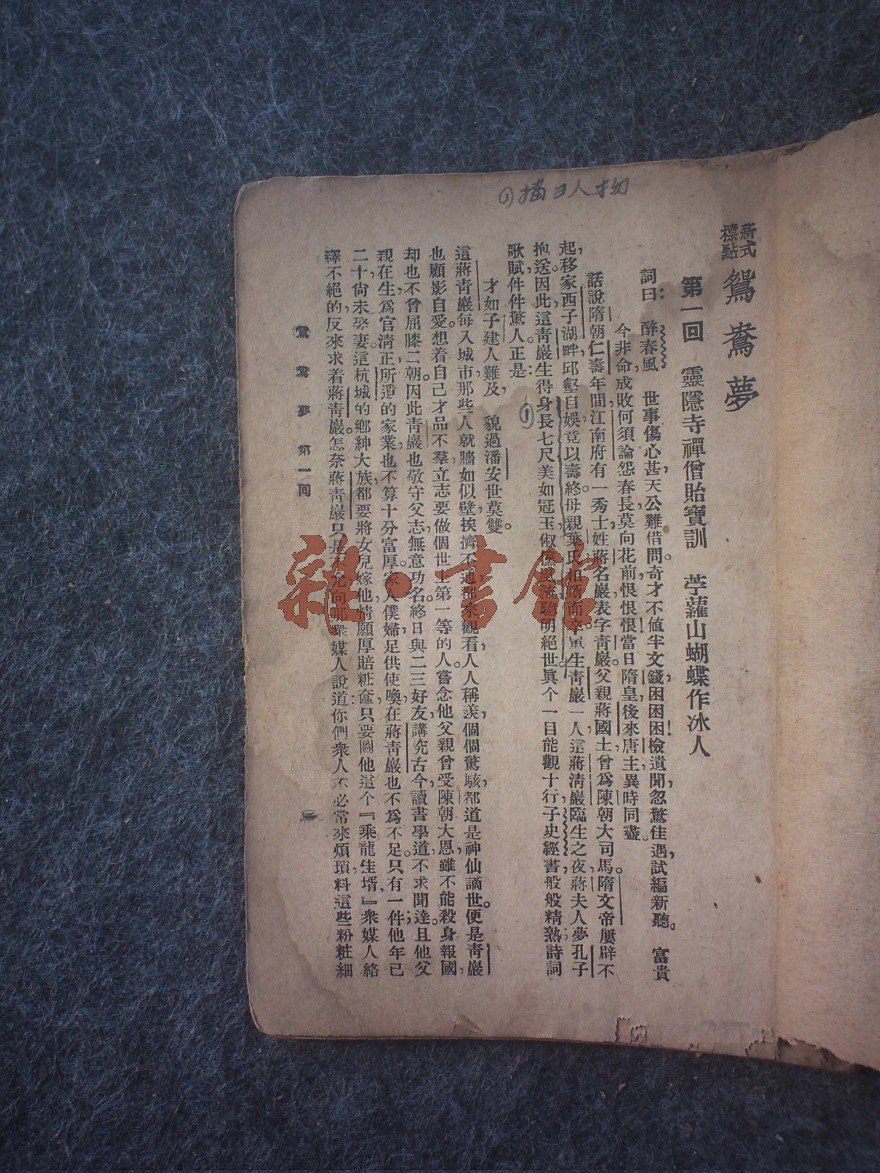 ①描日人物
新式
標點
鴛鴦夢
第一回 靈隱寺禪僧貽寶訓 苧蘿山蝴蝶作冰人
詞曰：醉春風 世事傷心甚，天公難借問，奇才不值半文錢，困困困！檢遺聞，忽驚佳遇，試編新聽。 富貴
今非命，成敗何須論，怨春長莫向花前，恨恨恨！當日隋皇，後來唐主，異時同盡。
話說隋朝仁壽年間，江南府有一秀士，姓蔣名巖，表字青巖。父親蔣國士，曾爲陳朝大司馬，隋文帝屢辟不
起，移家西子湖畔，邱壑自娛，竟以壽終。母親葉氏，生青巖一人。這蔣清巖臨生之夜，蔣夫人夢孔子
抱送，因此這青巖生得身長七尺，美如冠玉，聰明絕世，眞个一目能觀十行，子史經書，般般精熟，詩詞
歌賦，件件驚人。正是：
①
才如子建人難及， 貌過潘安世莫雙。
這蔣青巖每入城市，那些人就牆如似壁，挨擠不通，都來觀看，人人稱羨，個個驚駭，都道是神仙謫世。便是青巖
也顧影自愛，想着自己才品不羣，立志要做個世第一等的人。嘗念他父親曾受陳朝大恩，雖不能殺身報國，
却也不曾屈膝二朝。因此青巖也敬守父志，無意功名，終日與二三好友，講究古今，讀書學道，不求聞達；且他父
親在生，爲官清正，所遺的家業也不算十分富厚，家人僕婦，足供使喚，在蔣青巖也不爲不足。只有一件，他年已
二十，尙未娶妻。這杭城的鄉紳大族，都要將女兒嫁他，情願厚賠粧奩，只要圖他這个『乘龍佳壻。』衆媒人絡
繹不絕的，反來求着蔣青巖。怎奈蔣青巖只是不允，向那衆媒人說道：你們衆人，不必常來煩瑣，料這些粉粧細
鴛鴦夢 第一回
雜·書館